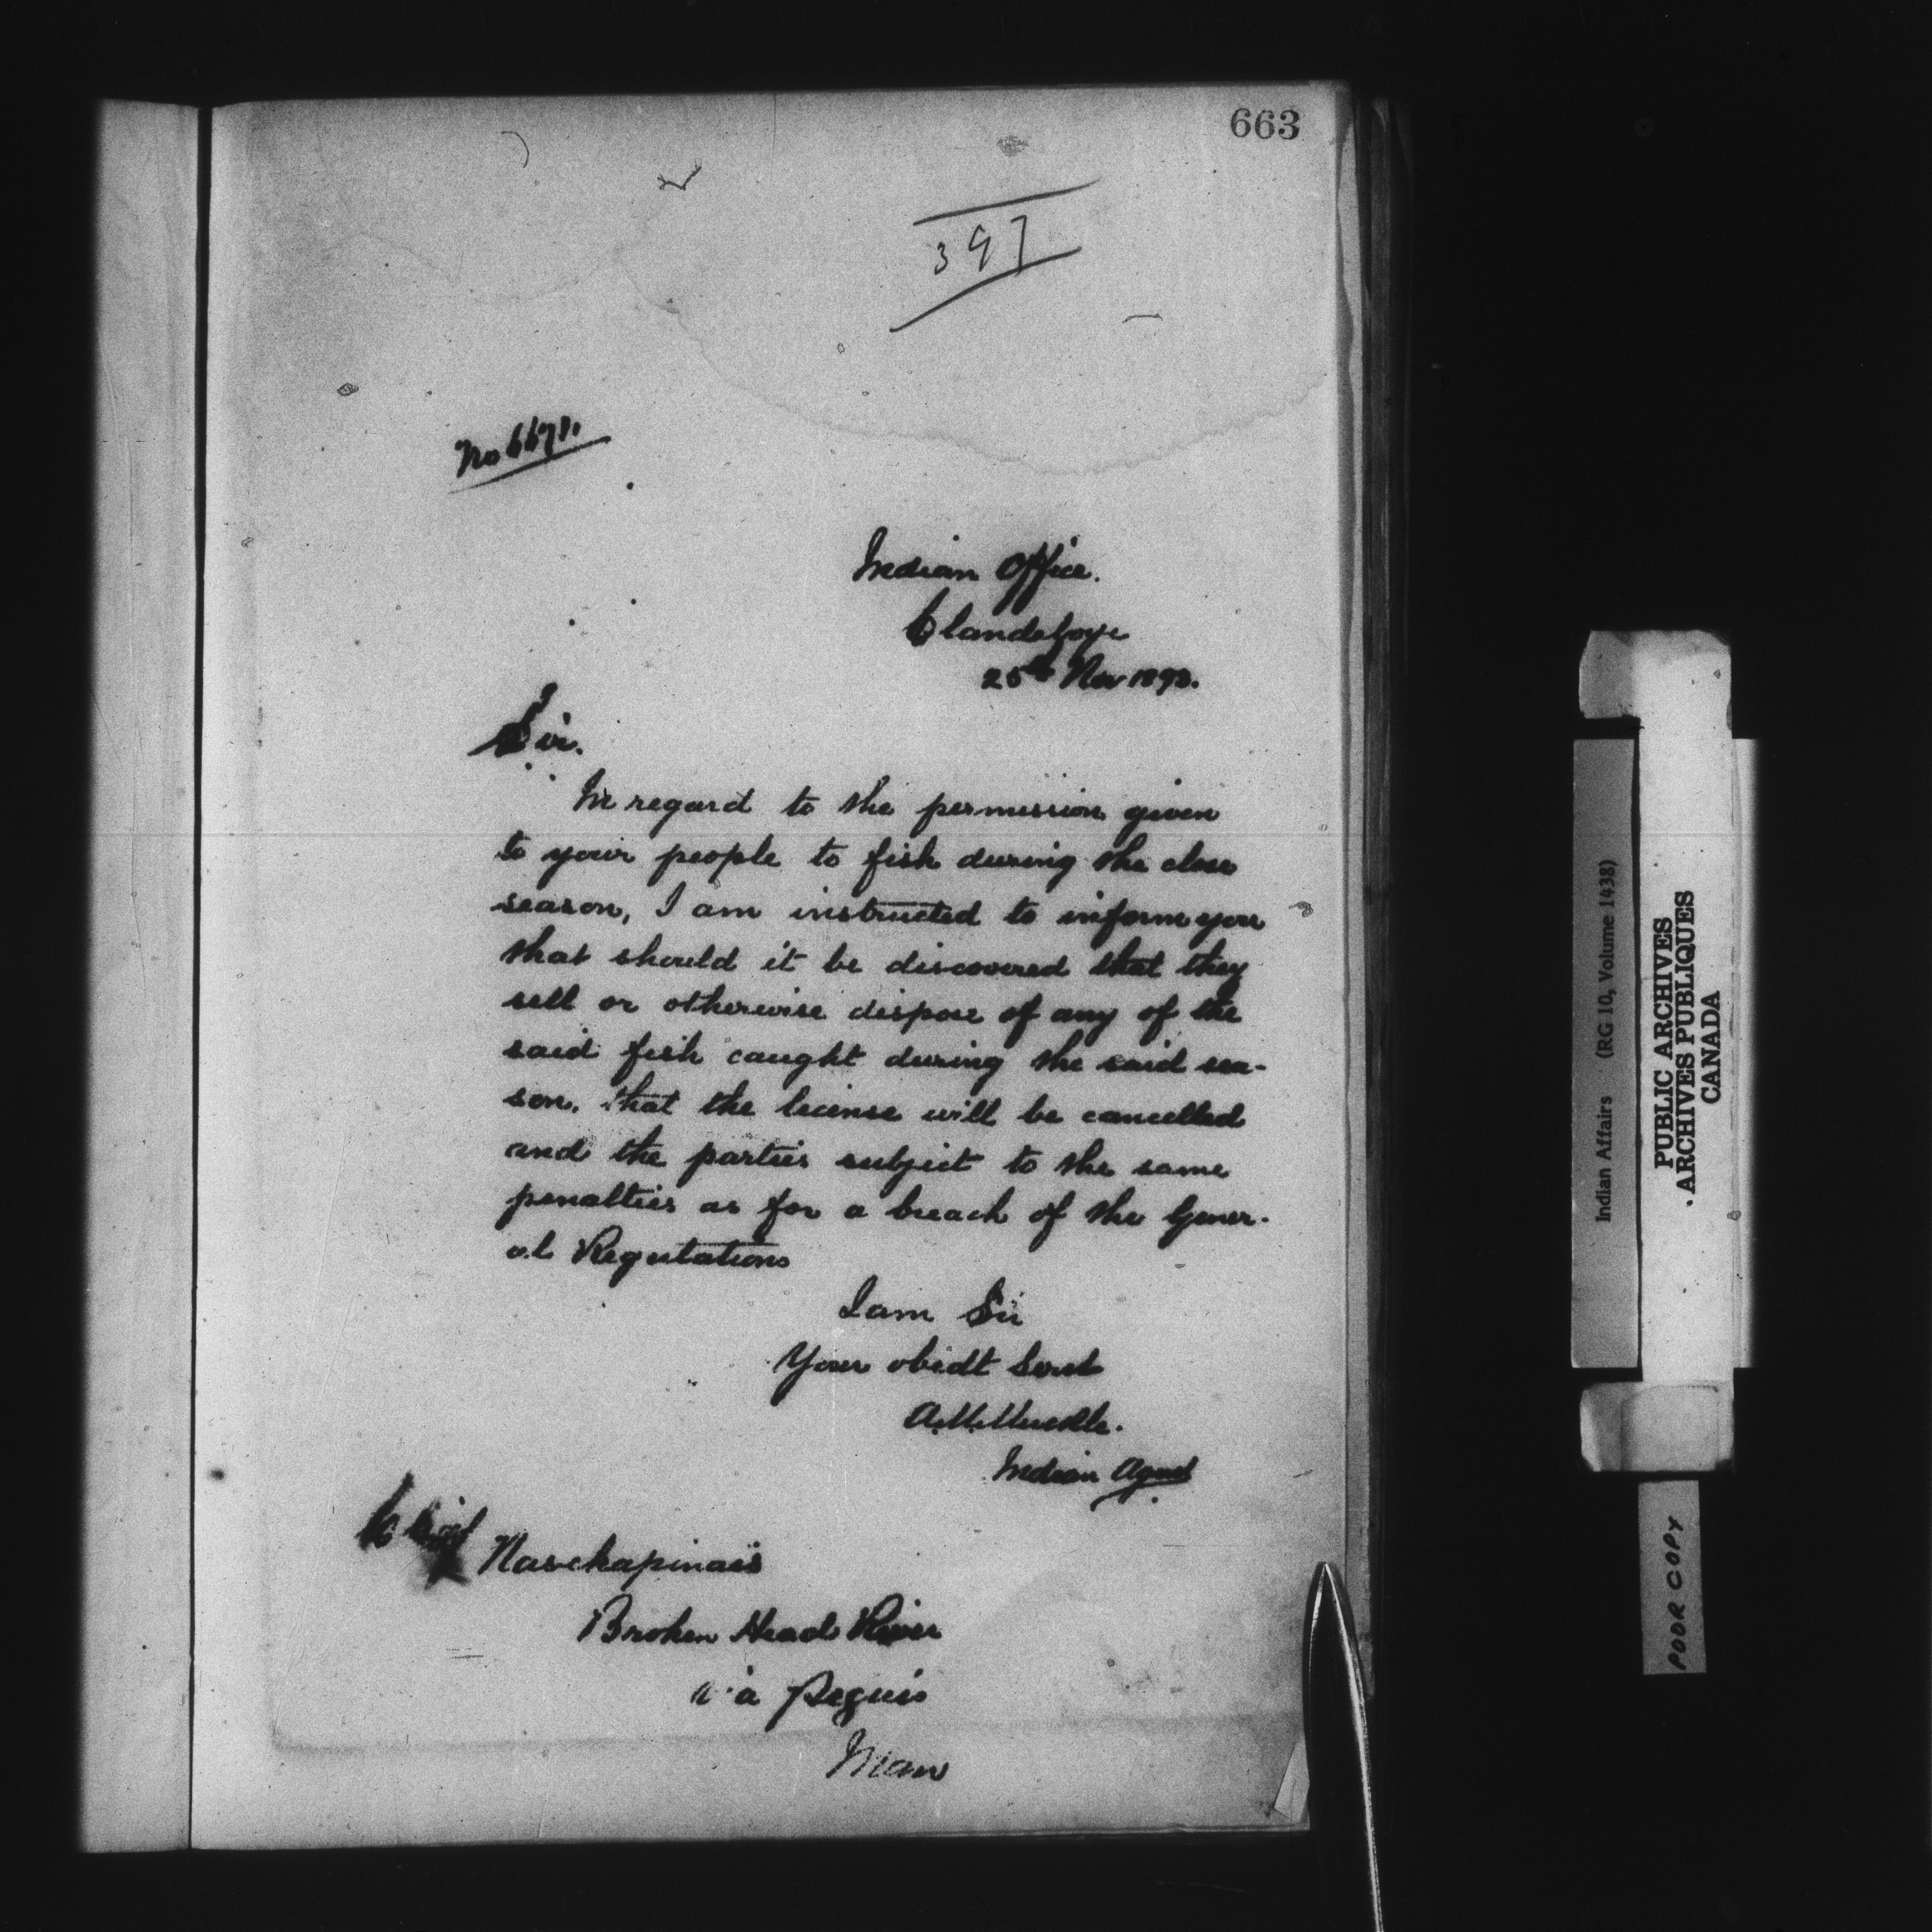 663
397
No 6678.
Indian Office.
Clandeboye
25th Nov 1893.
Sir.
In regard to the permission given
to your people to fish during the close
season, I am instructed to inform you
that should it be discovered that they
sell or otherwise dispose of any of the
said fish caught during the said sea-
son, that the license will be cancelled
and the parties subject to the same
penalties as for a breach of the Gener-
al Regulations
I am Sir
Your obedt Servt
A.M. Muckle.
Indian Agent
Chief
Naschapinais
Broken Head River
via Peguis
Man
Indian Affairs (RG 10, Volume 1438)
PUBLIC ARCHIVES
ARCHIVES PUBLIQUES
CANADA
POOR COPY